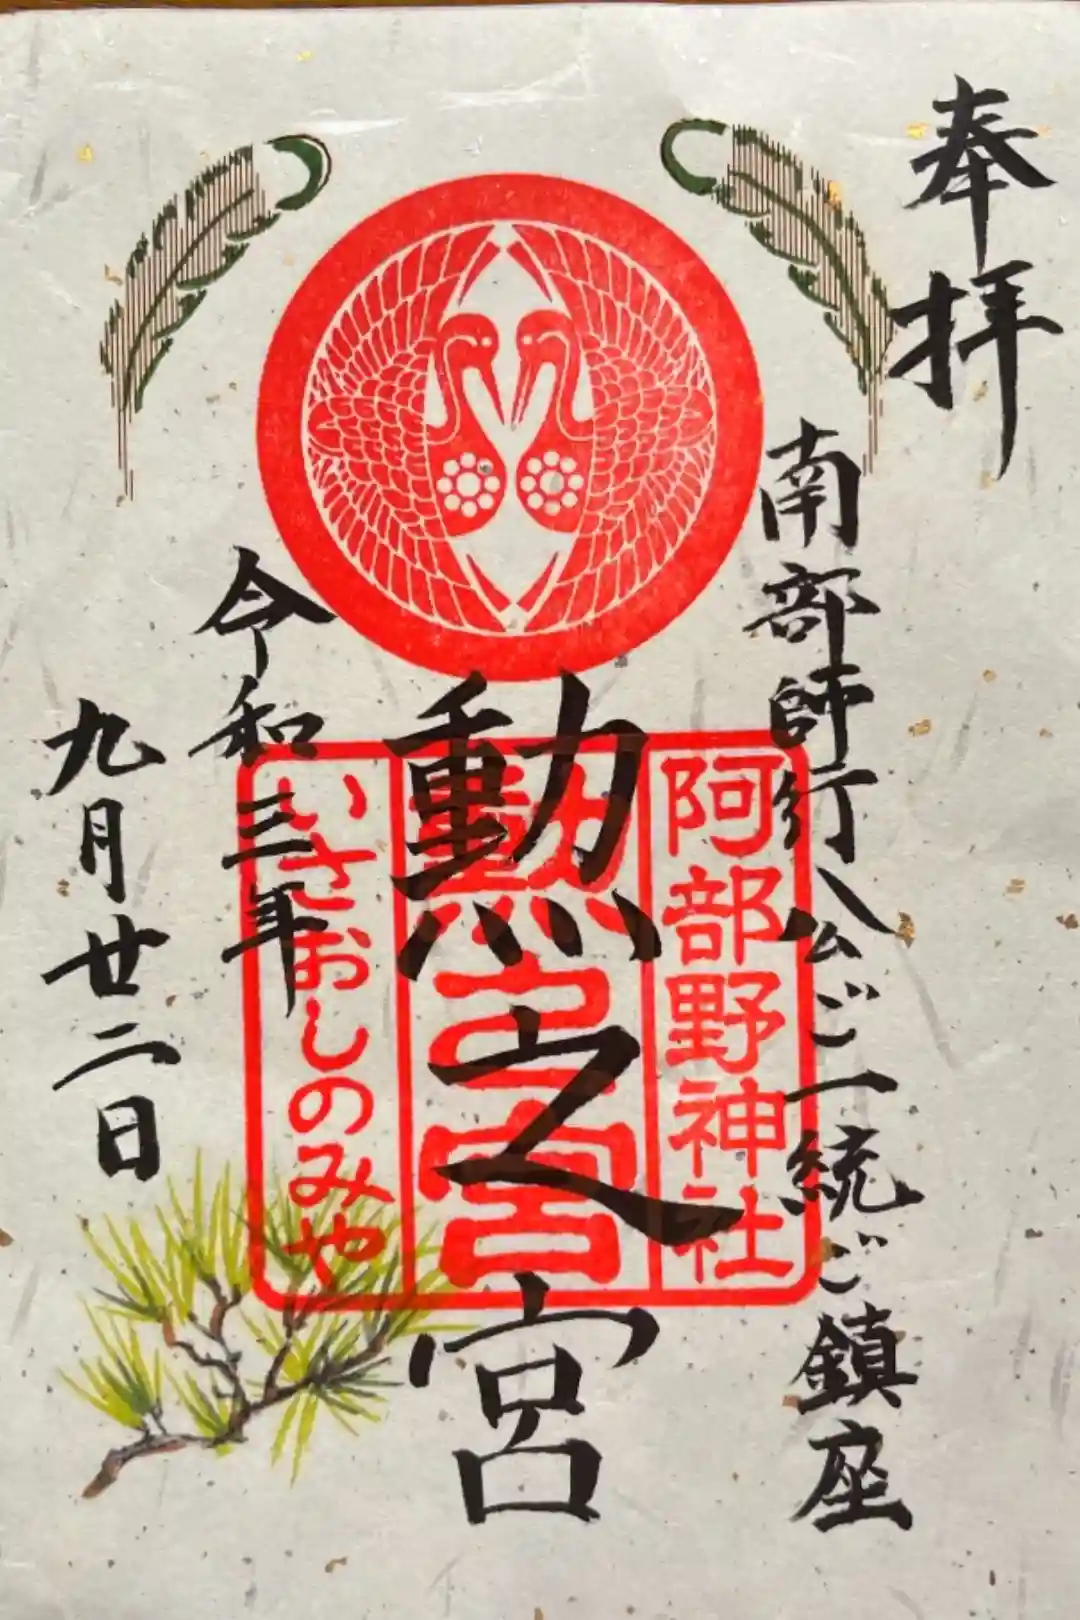 奉拝
南部師行公ご一統ご鎮座
阿部野神社
勲之宮
勲之宮
いさおしのみや
令和三年
九月廿二日